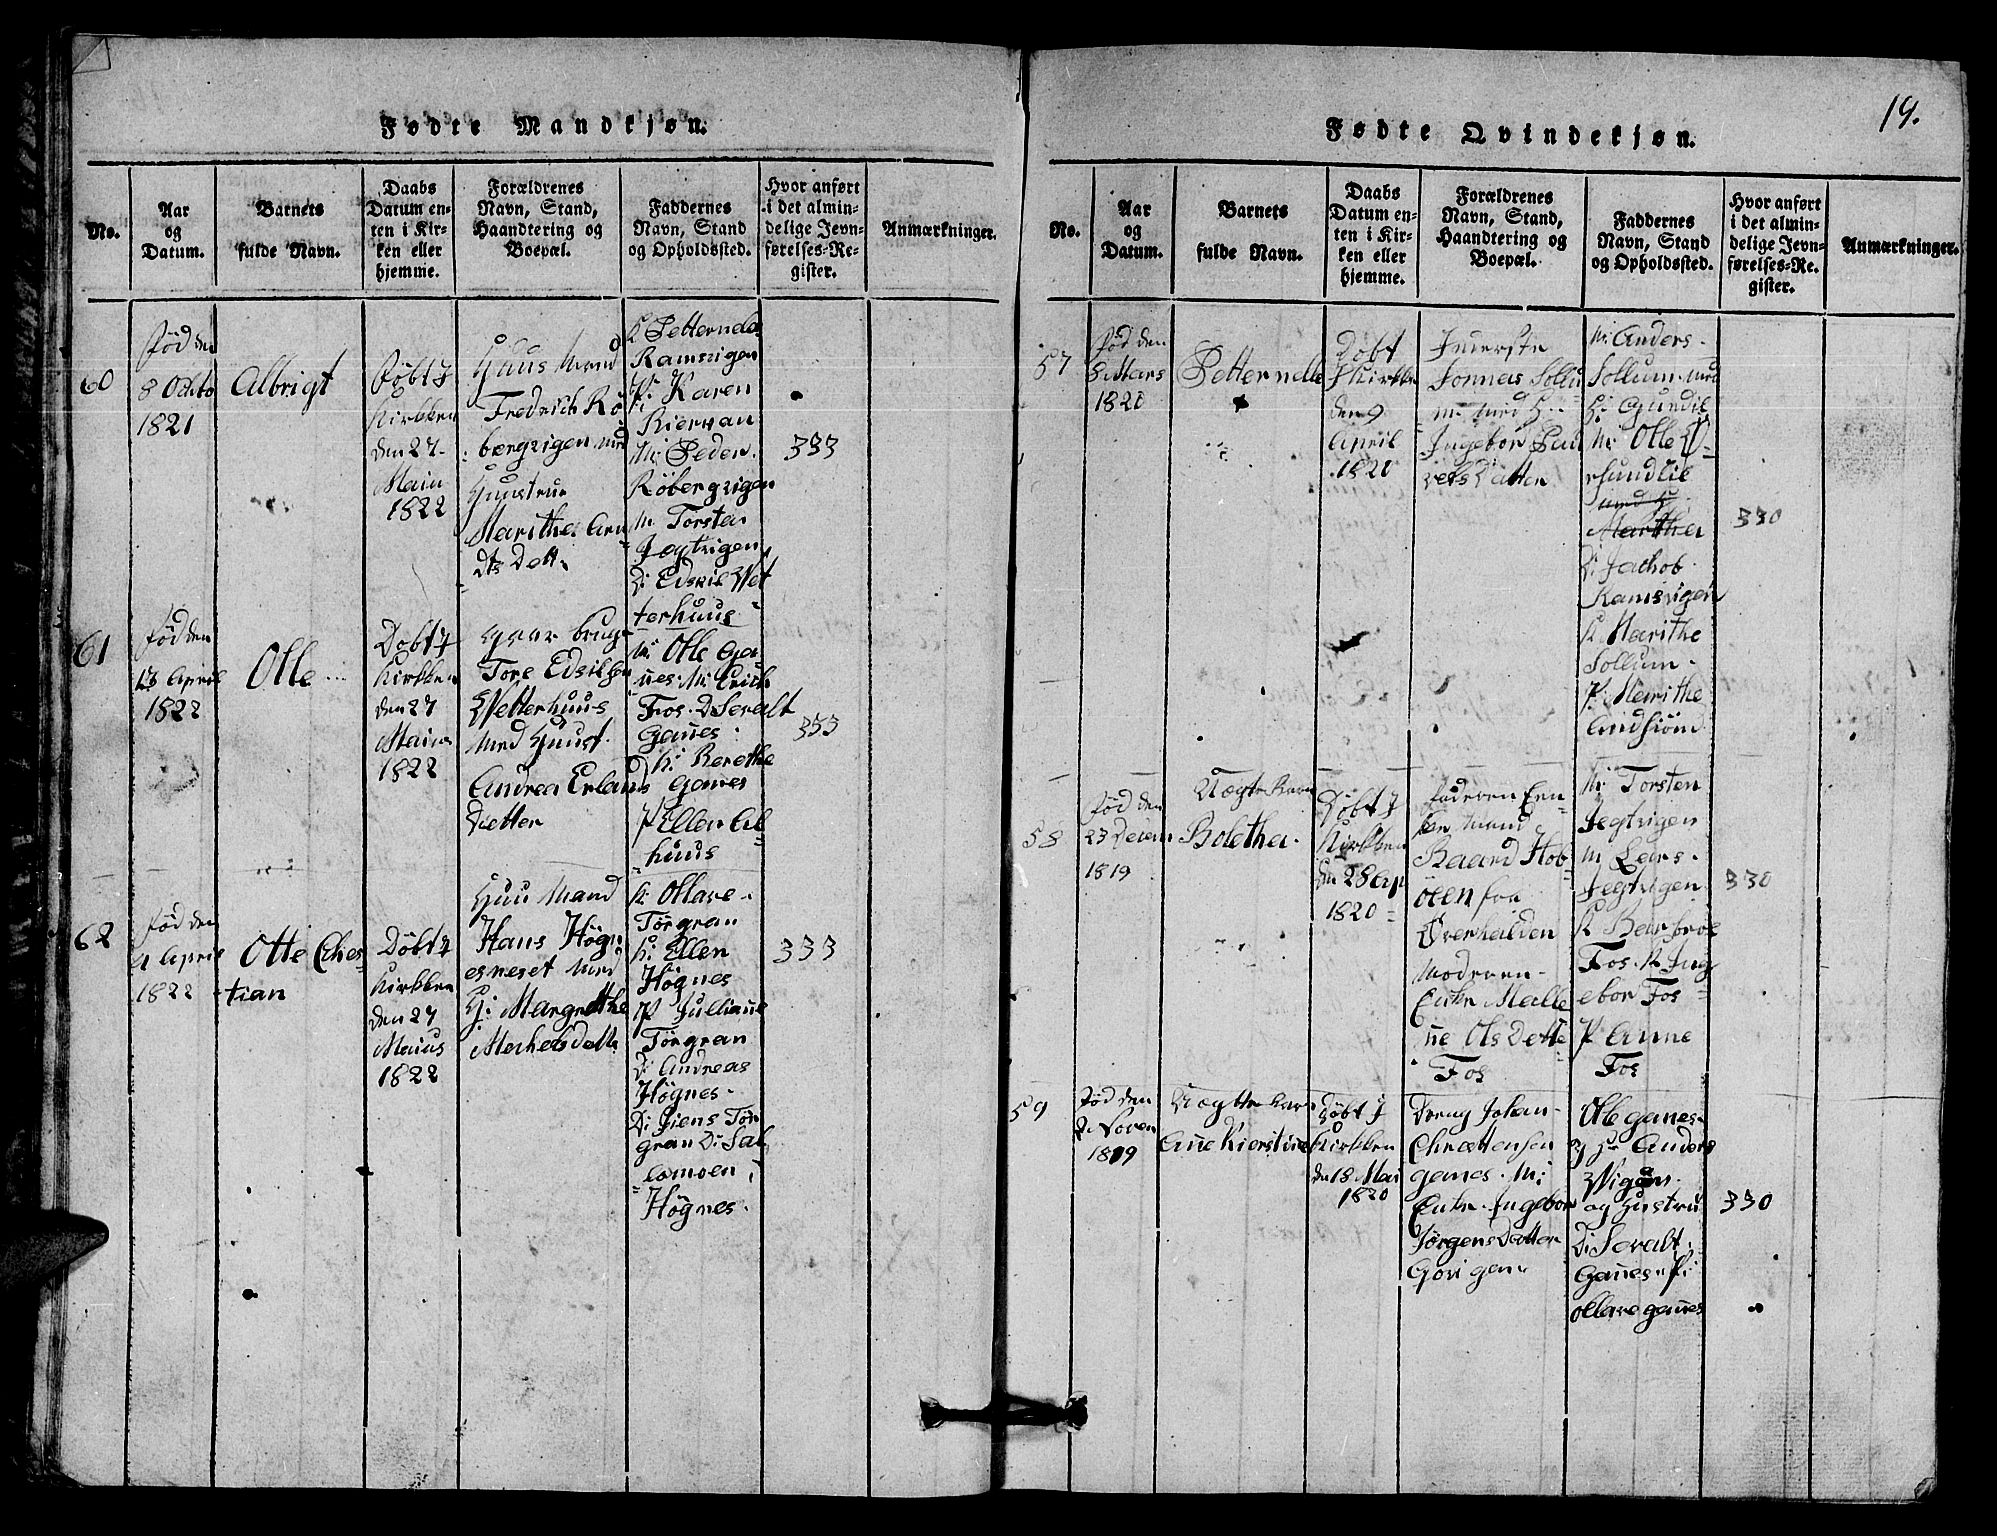 Fødte Mandkjøn.
No.
Aar
og
Datum.
Barnets
fulde Navn.
Daabs
Datum en-
ten i Kir-
ken eller
hjemme.
Forældrenes
Navn, Stand,
Haandtering og
Boepæl.
Faddernes
Navn, Stand
og Opholdssted.
Hvor anført
i det almin-
delige Jevn-
førelses-Re-
gister.
Anmærkninger.
60
Fød den
8 Octo
1821
Albrigt
Døbt J
Kirkken
den 27
Main
1822
Huus Mand
Fredrich Rø
bergvigen med
Huustrue
Marithe Arn
dts Dott
K Petternele
Ramsvigen
P: Karen
Kiervan
M: Peder
Røbergvigen
M: Torsten
Jegtvigen
D: Edskil Wet
terhuus
333
61
Fød den
13 April
1822
Olle
Døbt J
Kirkken
den 27
Maius
1822
Gaar bruger
Tore Edsilsen
Wetterhuus
Med Huust.
Andrea Erlands
Datter
M: Olle Ga
nes M: Erich
Fos. D Sevalt
Ganes
K: Berethe
Ganes
P Ellen Al
huus
333
62
Fød den
4 April
1822
Otte Ches
tian
Døbt J
Kirkken
den 27
Maius
1822
Huu Mand
Hans Høgn
esneset Med
H: Margrethe
Mechels datt
K: Ollave
Tørgran
K: Ellen
Høgnes
P Julliane
Tørgran
D: Andreas
Høgnes
D: Jiens Tør
gran D: Sal
comoen
Høgnes.
333
19.
Fødte Qvindekjøn.
No.
Aar
og
Datum.
Barnets
fulde Navn.
Daabs
Datum en-
ten i Kir-
ken eller
hjemme.
Forældrenes
Navn, Stand,
Haandtering og
Boepæl.
Faddernes
Navn, Stand
og Opholdssted.
Hvor anført
i det almin-
delige Jevn-
førelses-Re-
gister.
Anmærkninger.
57
Fød den
8 Mars
1820
Petternelle
Døbt
J Kirkken
den 9
April
1820
Inderste
Jonnas Sollu
m med H
Ingebor Pau
vels Datter
M: Anders
Sollum med
H: Gundil
M: Olle Ø
rsundlil
med H
Marithe
D: Jachob
Ramsvigen
K: Marithe
Sollum
P: Marithe
Andsiønd
330
58
Fød den
23 Decem
1819
Uægte Barn
Bolethe.
Døbt J
Kirkken
den 28 Ap
1820
Faderen En
ke Mand
Baard Hob
øen fra
Overhalden
Moderen
Enke Malle
ne Ols Dotte
Fos
M: Torsten
Jegtvigen
M Lars
Jegtvigen
K Barbroe
Fos. K Ing
ebor Fos
P Anne
Fos
330
59
Fød den
2 Noven
1819
Uægte Barn
Ane Kierstine
Døbt J
Kirkken
den 18 Mai
1820
Dreng Johan
Chrættensen
ganes. M:
Enke. Ingebor
Jørgens Datter
Govigen
Ole ganes
og H: Anders
Wigen
og Hustru
D: Sevalt
Ganes P:
Ollave ganes
330